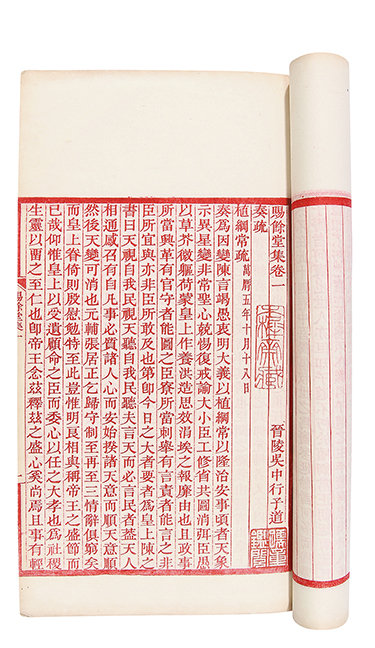 賜餘堂集卷一
晉陵吳中行子道
奏疏
植綱常疏萬曆五年十月十八日
奏爲因變陳言竭愚衷明大義以植綱常以隆治安事頃者天象
示異星變非常聖心兢惕復戒諭大小臣工修省共圖消弭臣愚
以草芥微軀荷蒙皇上作養洪造思效涓埃之報靡由也且政事
所當興革有官守者能圖之臣寮所當刺舉有言責者能言之非
臣所宜與亦非臣所敢及也第卽今日之大者要者爲皇上陳之
書曰天視自我民視天聽自我民聽夫言天而必言民者葢天人
相通感召有自凡事必質諸人心而安始揆諸天意而順天意順
然後天變可消也元輔張居正乞歸守制至再至三情辭俱窮矣
而皇上眷倚則殷慰勉特至此豈惟明良相與稱帝王之盛節而
已哉仰惟皇上以受遺顧命之臣而委心以任之大孝也爲社稷
生靈以畱之至仁也卽帝王念茲釋茲之盛心奚尚焉且事有輕
賜餘堂集
一